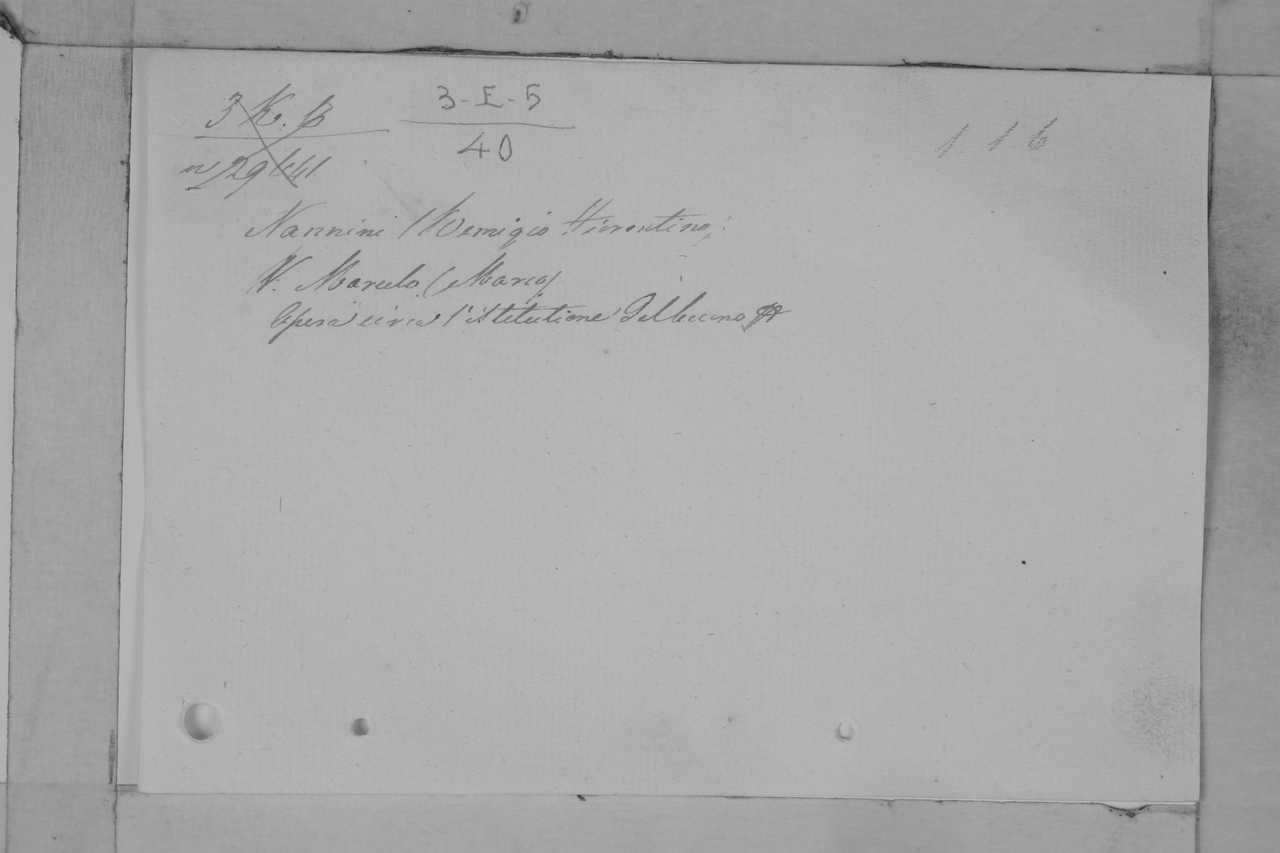 3 K. β
3-E-5
40
116
Nannini (Remigio Fiorentino)
V. Marulo (Marco)
Opera circa l'istitutione del buono